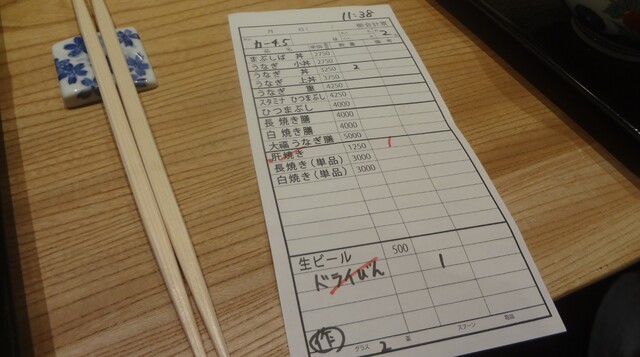 11:38
御会計票
カ-45 2
品名 単価 数量 備考
まぶしば 丼 2750
うなぎ 小丼 2750
うなぎ 丼 3250 2
うなぎ 上丼 3750
うなぎ 重 4250
スタミナ ひつまぶし 4250
ひつまぶし 4000
長 焼き膳 4000
白 焼き膳 4000
大福 うなぎ膳 5000
肝焼き 1250 1
長焼き(単品) 3000
白焼き(単品) 3000
生ビール 500
ドライびん 1
作
グラス 2 スプーン